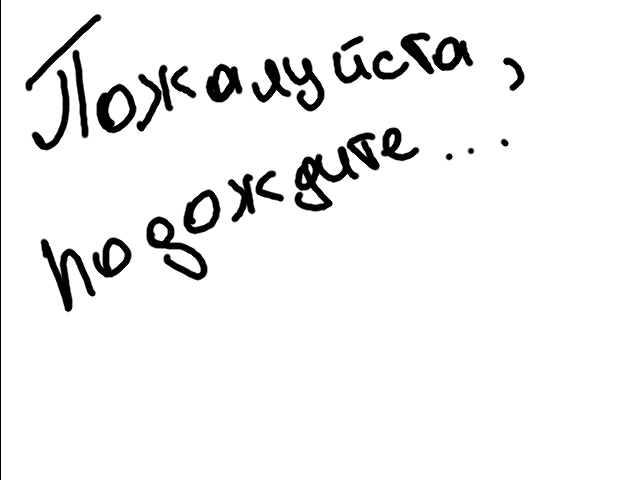 Пожалуйста,
подождите...